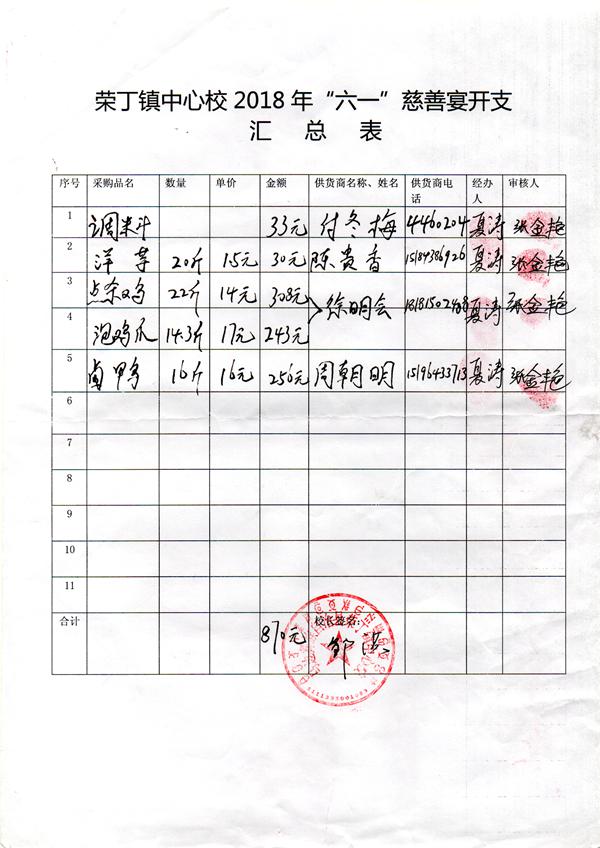 荣丁镇中心校2018年“六一”慈善宴开支
汇 总 表
序号 采购品名 数量 单价 金额 供货商名称、姓名 供货商电话 经办人 审核人
1 调米斗 33元 付冬梅 4460204 夏涛 张金艳
2 洋芋 20斤 15元 30元 陈贵香 15184386926 夏涛 张金艳
3 点杀鸡 22斤 14元 308元 徐明会 夏涛 张金艳
4 泡鸡爪 14.3斤 17元 243元
5 卤鸭 16斤 16元 256元 周朝明 15196433713 夏涛 张金艳
6
7
8
9
10
11
合计 870元 校长签名: 邹